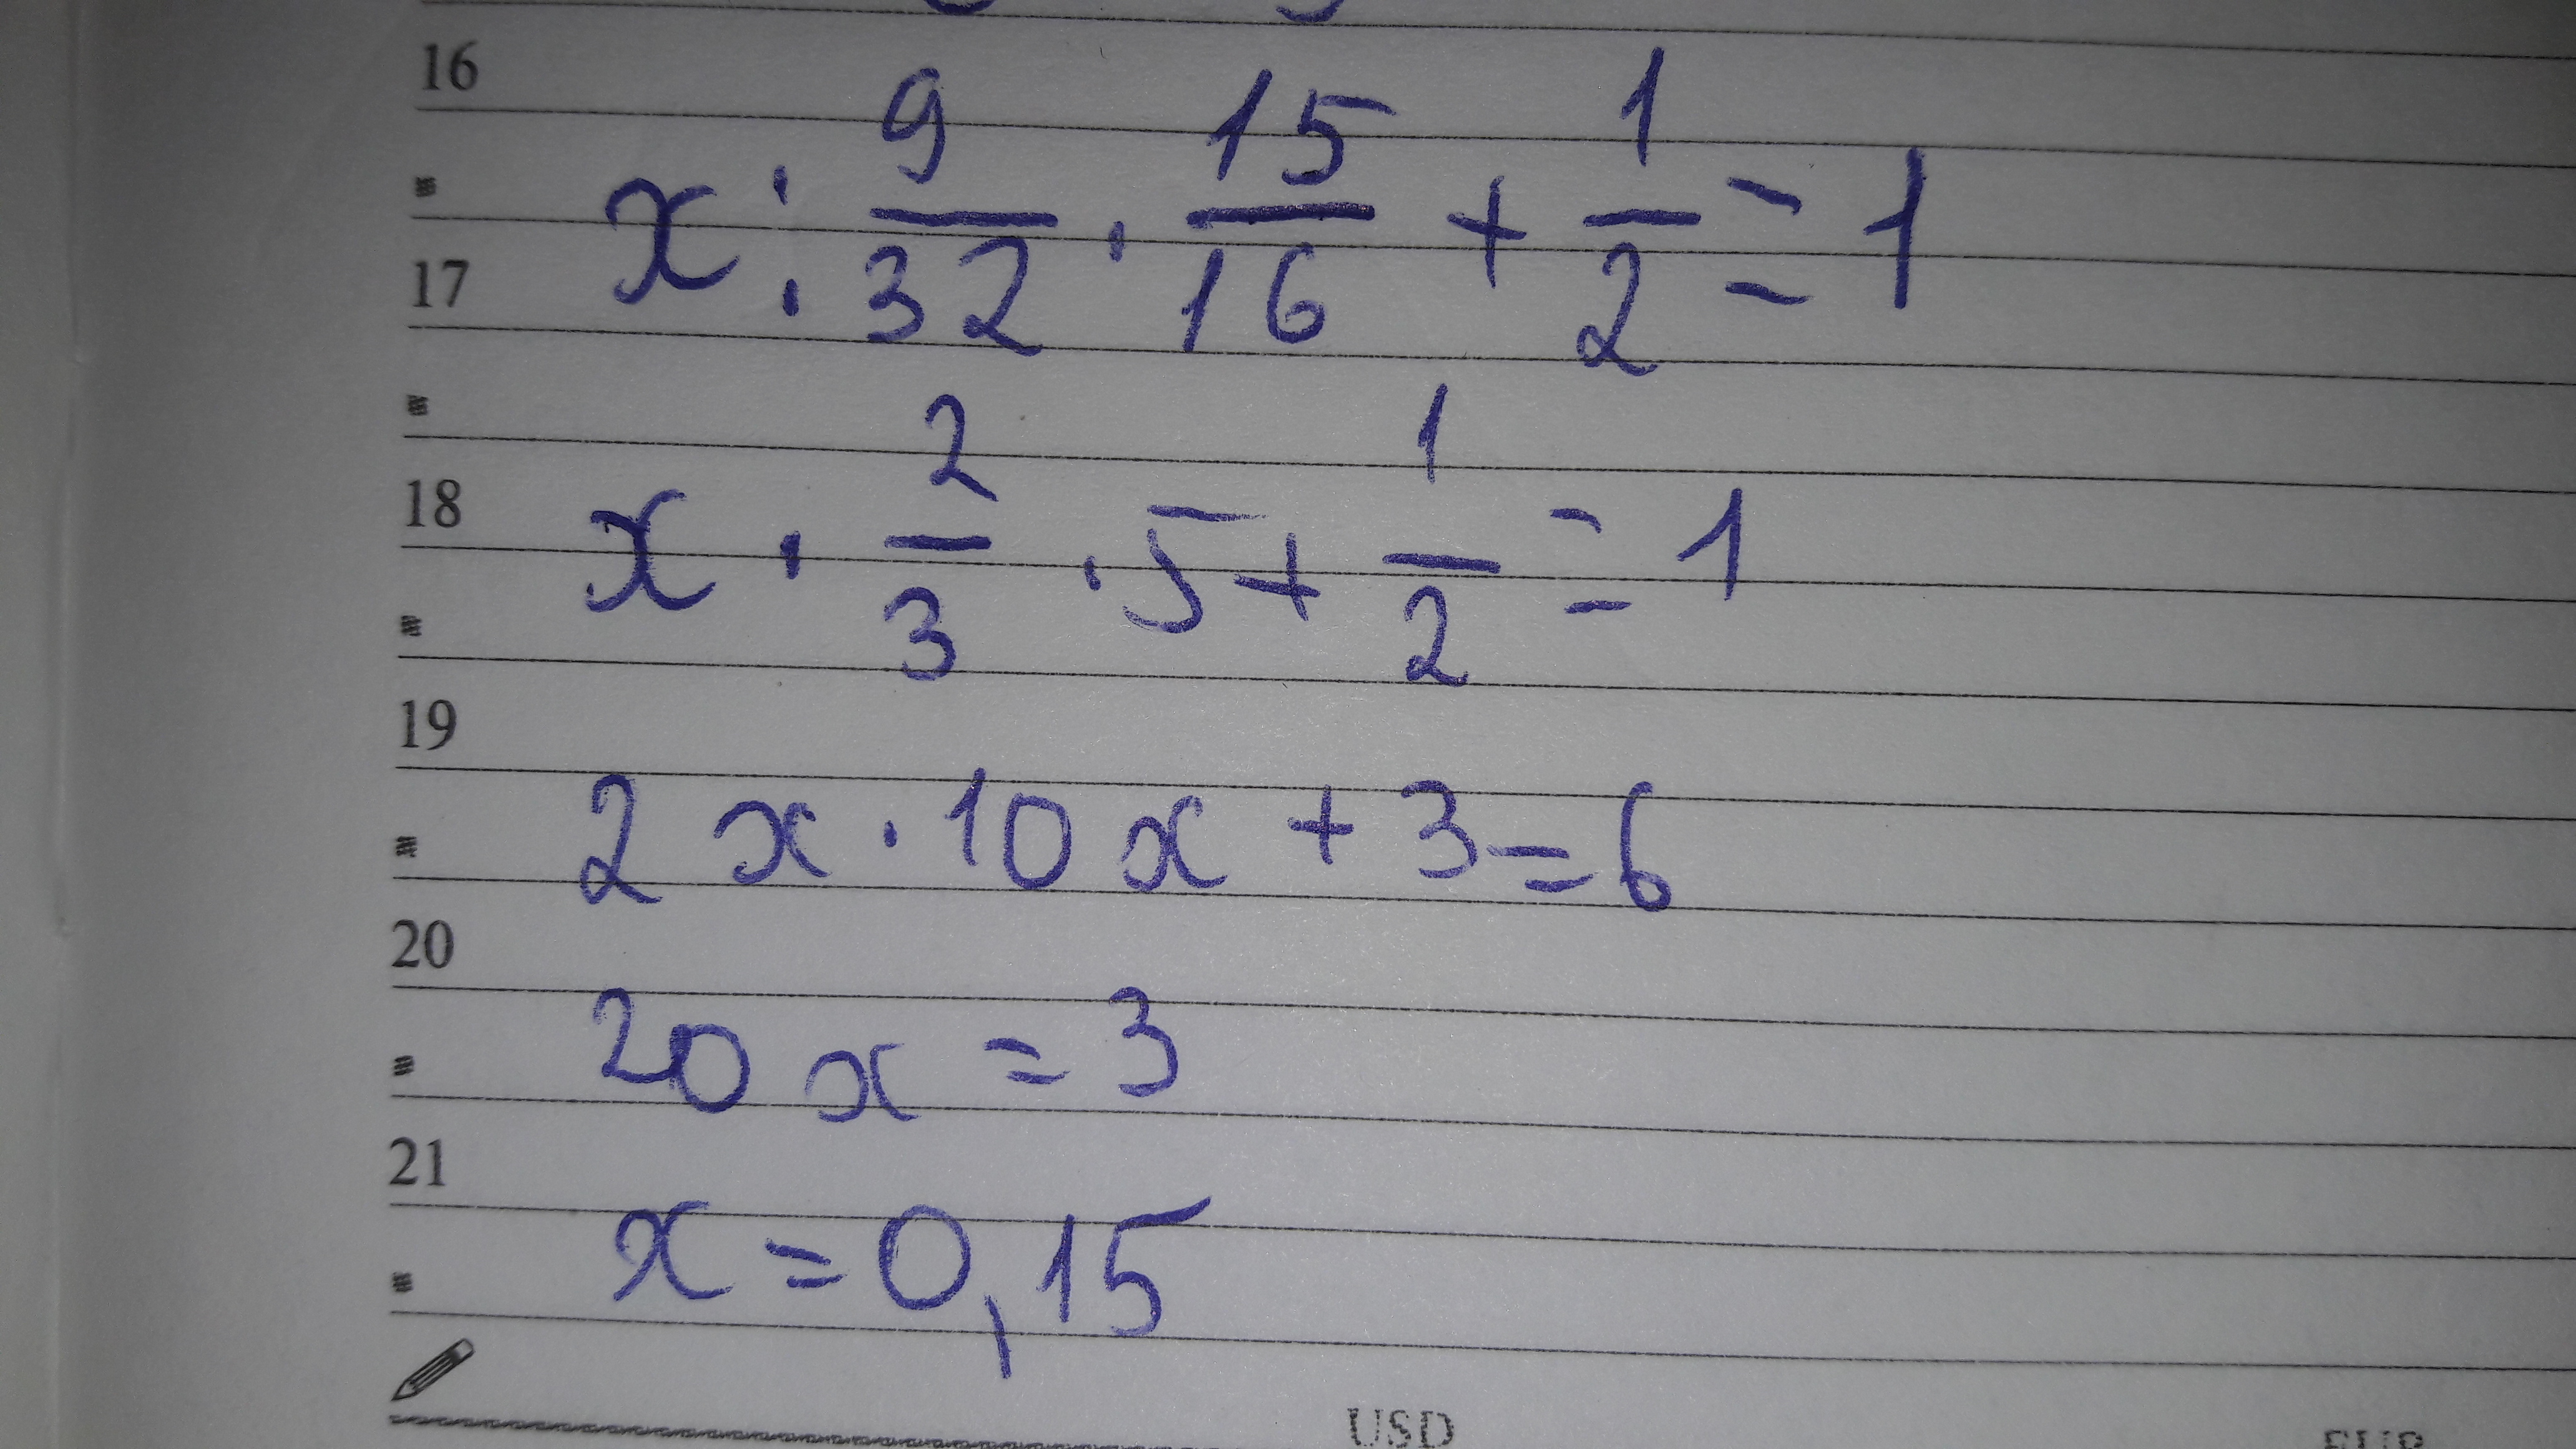 16
x : 9/32 · 15/16 + 1/2 = 1
17
18
x · 2/3 · 5 + 1/2 = 1
19
2x · 10x + 3 = 6
20
20x = 3
21
x = 0,15
USD
EUR